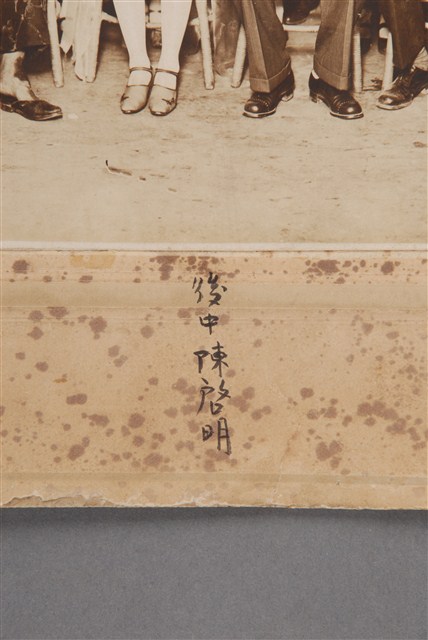 後中陳啓明